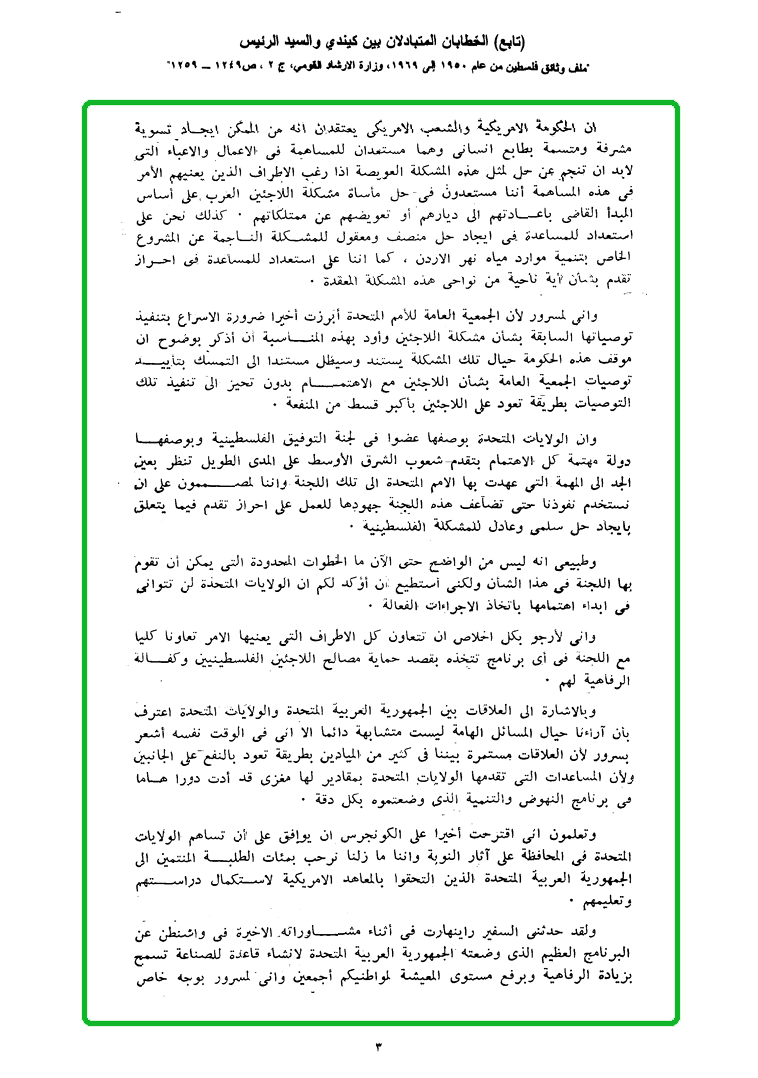 (تابع) الخطابان المتبادلان بين كيندي والسيد الرئيس
"ملف وثائق فلسطين من عام ١٩٥٠ إلى ١٩٦٩، وزارة الارشاد القومي، ج ٢ ، ص١٢٤٩ – ١٢٥٩"
ان الحكومة الامريكية والشعب الامريكى يعتقدان انه من الممكن ايجـاد تسوية
مشرفة ومتسمة بطابع انسانى وهما مستعدان للمساهمة فى الاعمال والاعباء التى
لابد ان تنجم عن حل لمثل هذه المشكلة العويصة اذا رغب الاطراف الذين يعنيهم الأمر
فى هذه المساهمة أننا مستعدون فى حل مأساة مشكلة اللاجئين العرب على أساس
المبدأ القاضى باعـادتهم الى ديارهم أو تعويضهم عن ممتلكاتهم ٠ كذلك نحن على
استعداد للمساعدة فى ايجاد حل منصف ومعقول للمشـكلة الناجمة عن المشروع
الخاص بتنمية موارد مياه نهر الاردن ، كما اننا على استعداد للمساعدة فى احـراز
تقدم بشأن أية ناحية من نواحى هذه المشكلة المعقدة ٠
وانى لمسرور لأن الجمعية العامة للأمم المتحدة أبرزت أخيرا ضرورة الاسراع بتنفيذ
توصياتها السابقة بشأن مشكلة اللاجئين وأود بهذه المنـاسبة أن أذكر بوضوح ان
موقف هذه الحكومة حيال تلك المشكلة يستند وسيظل مستندا الى التمسك بتأييـد
توصيات الجمعية العامة بشأن اللاجئين مع الاهتمـــام بدون تحيز الى تنفيذ تلك
التوصيات بطريقة تعود على اللاجئين بأكبر قسط من المنفعة ٠
وان الولايات المتحدة بوصفها عضوا فى لجنة التوفيق الفلسطينية وبوصفهـا
دولة مهتمة كل الاهتمام بتقدم شعوب الشرق الأوسط على المدى الطويل تنظر بعين
الجد الى المهمة التى عهدت بها الامم المتحدة الى تلك اللجنة واننا لمصـــممون على ان
نستخدم نفوذنا حتى تضاعف هذه اللجنة جهودها للعمل على احراز تقدم فيما يتعلق
بايجاد حل سلمى وعادل للمشكلة الفلسطينية ٠
وطبيعى انه ليس من الواضح حتى الآن ما الخطوات المحدودة التى يمكن أن تقوم
بها اللجنة فى هذا الشأن ولكنى أستطيع ان أؤكد لكم ان الولايات المتحدة لن تتوانى
فى ابداء اهتمامها باتخاذ الاجراءات الفعالة ٠
وانى لأرجو بكل اخلاص ان تتعاون كل الاطراف التى يعنيها الامر تعاونا كليا
مع اللجنة فى أى برنامج تتخذه بقصد حماية مصالح اللاجئين الفلسطينيين وكفـالة
الرفاهية لهم ٠
وبالاشارة الى العلاقات بين الجمهورية العربية المتحدة والولايات المتحدة اعترف
بأن آراءنا حيال المسائل الهامة ليست متشابهة دائما الا انى فى الوقت نفسه أشعر
بسرور لأن العلاقات مستمرة بيننا فى كثير من الميادين بطريقة تعود بالنفع على الجانبين
ولأن المساعدات التى تقدمها الولايات المتحدة بمقادير لها مغزى قد أدت دورا هـاما
فى برنامج النهوض والتنمية الذى وضعتموه بكل دقة ٠
وتعلمون انى اقترحت أخيرا على الكونجرس ان يوافق على أن تساهم الولايات
المتحدة فى المحافظة على آثار النوبة واننا ما زلنا نرحب بمئات الطلبـة المنتمين الى
الجمهورية العربية المتحدة الذين التحقوا بالمعاهد الامريكية لاستكمال دراســتهم
وتعليمهم ٠
ولقد حدثنى السفير راينهارت فى أثناء مشـــاوراته الاخيرة فى واشنطن عن
البرنامج العظيم الذى وضعته الجمهورية العربية المتحدة لانشاء قاعدة للصناعة تسمح
بزيادة الرفاهية وبرفع مستوى المعيشة لمواطنيكم أجمعين وانى لمسرور بوجه خاص
٣